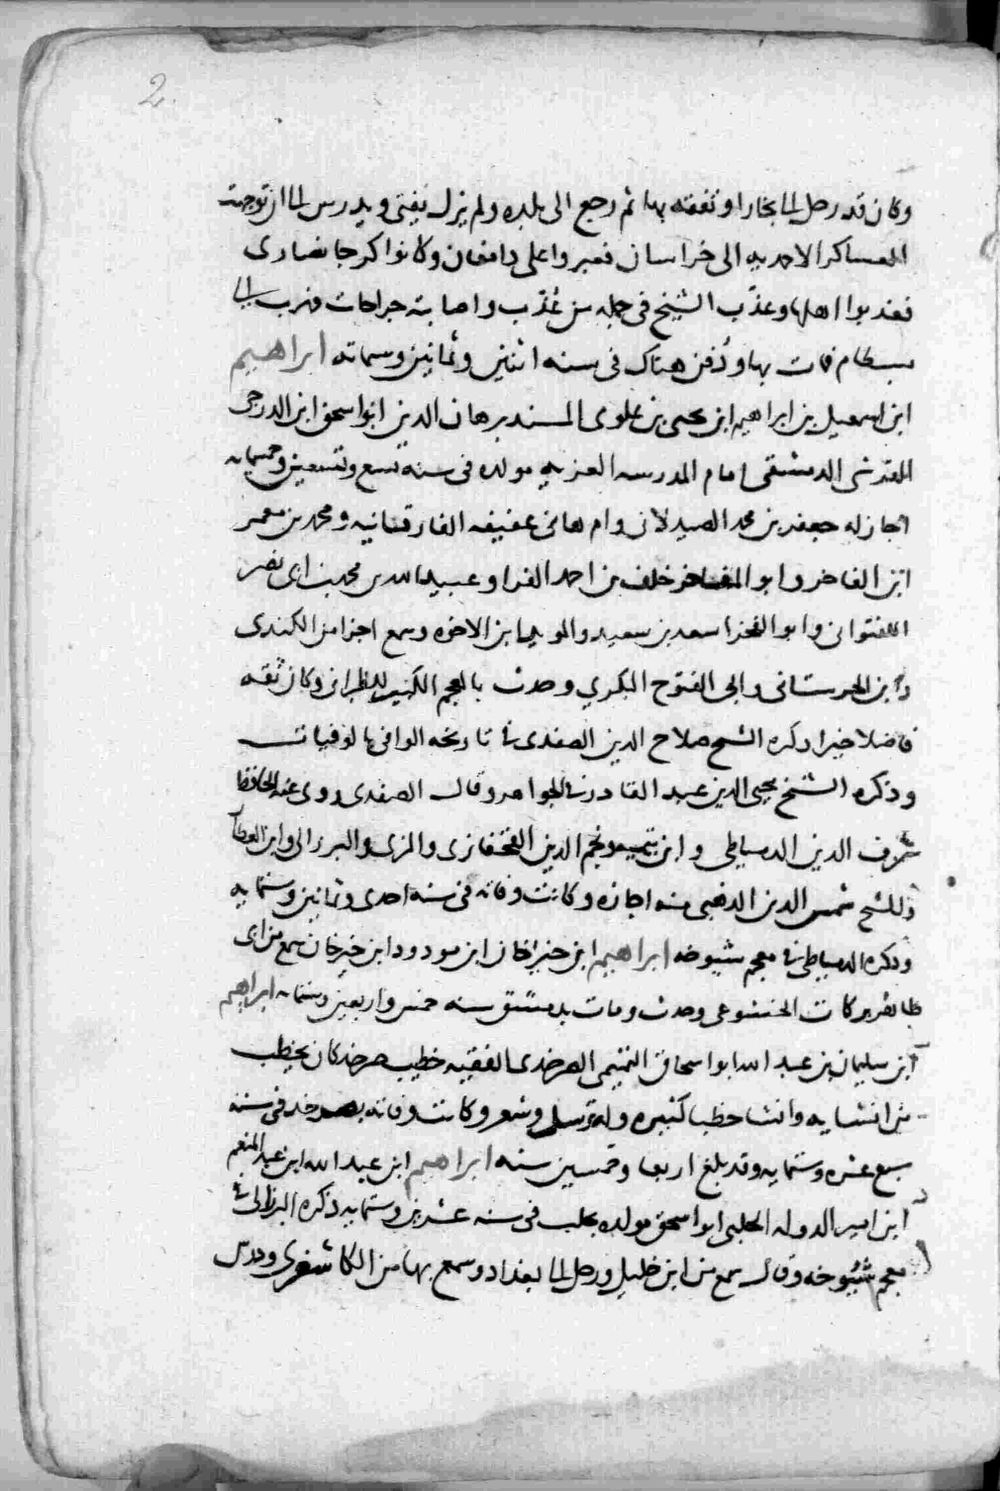 2
وكان قد رحل الى بخارا وتفقه بها ثم رجع الى بلده ولم يزل يفتى ويدرس الى ان توجهت
العساكر الاحمديه الى خراسان فعبروا على دامغان وكانوا كرجا نصارى
فعذبوا اهلها وعذب الشيخ فى جمله من عُذب واصابته جراحات فهرب الى
بسطام فمات بها ودُفن هناك فى سنه اثنتين وثمانين وستماته ابراهيم
ابن اسمعيل بن ابراهيم ابن يحيى بن علوى المسند برهان الدين ابو اسحق ابن الدرجى
القدشى الدمشقى امام المدرسه العزيه مولده فى سنة تسع وتسعين وخمسمايه
اجاز له جعفر بن محمد الصيدلانى وام هانى عفيفه الفارقنانيه ومحمد بن معمر
ابن الفاخر وابو المفاخر خلف بن احمد الفرا وعبيد الله بن محمد بن ابى نصر
اللفتوانى وابو الفخر اسعد بن سعيد والمويد ابن الاخوه وسمع اجزا من الكندى
وابن الحرستانى وابى الفتوح البكري وحدث بالمعجم الكبير للطبرانى وكان ثقه
فاضلا خيرا ذكره الشيخ صلاح الدين الصفدى فى تاريخه الوافى بالوفيات
وذكره الشيخ محيى الدين عبد القادر فى الجواهر وقال الصفدى روى عنه الحافظ
شرف الدين الدمياطى وابن تيميه ونجم الدين القحفازى والمزى والبرزالى وابن العطار
وللشيخ شمس الدين الذهبى منه اجازه وكانت وفاته فى سنة احدى وثمانين وستمايه
وذكره الدمياطى فى معجم شيوخه ابراهيم ابن خيرخان ابن مودود ابن خيرخان سمع من ابى
طاهر بركات الخشوعى وحدث ومات بدمشق سنه خمس واربعين وستمايه ابراهيم
ابن سليمان بن عبد الله ابو اسحاق التميمى الصرخدى الفقيه خطيب صرخد كان يخطب
من انشايه وانشا خطبا كثيره وله ترسل وشعر وكانت وفاته بصرخد فى سنة
سبع عشره وستمايه وقد بلغ اربعا وخمسين سنه ابراهيم ابن عبد الله ابن عبد المنعم
ابن امير الدوله الحلبى ابو اسحق مولده بحلب فى سنه عشرين وستمايه ذكره البرزالى فى
معجم شيُوخه وقال سمع من ابن خليل ورحل الى بغداد وسمع بها من الكاشغرى ودرس